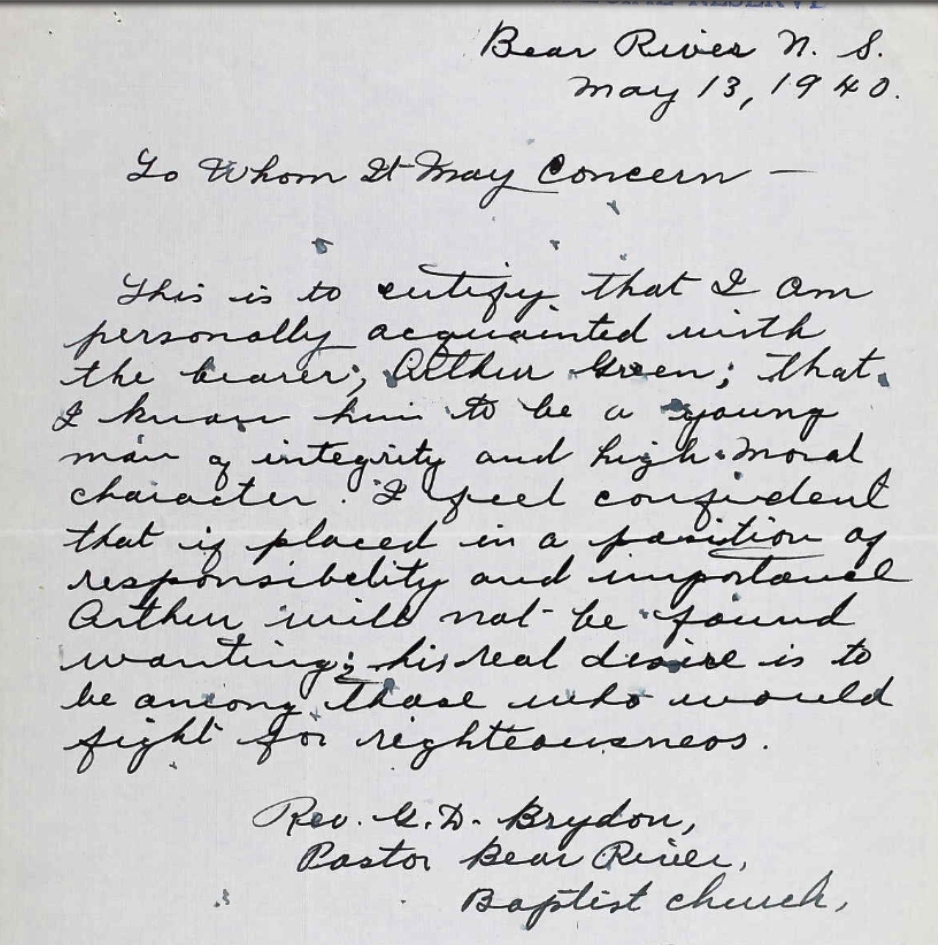 Bear River N. S.
May 13, 1940.
To Whom It May Concern —
This is to certify that I am
personally acquainted with
the bearer; Arthur Green; that
I know him to be a young
man of integrity and high moral
character. I feel confident
that if placed in a position of
responsibility and importance
Arthur will not be found
wanting; his real desire is to
be among those who would
fight for righteousness.
Rev. G. D. Brydon,
Pastor Bear River,
Baptist church,